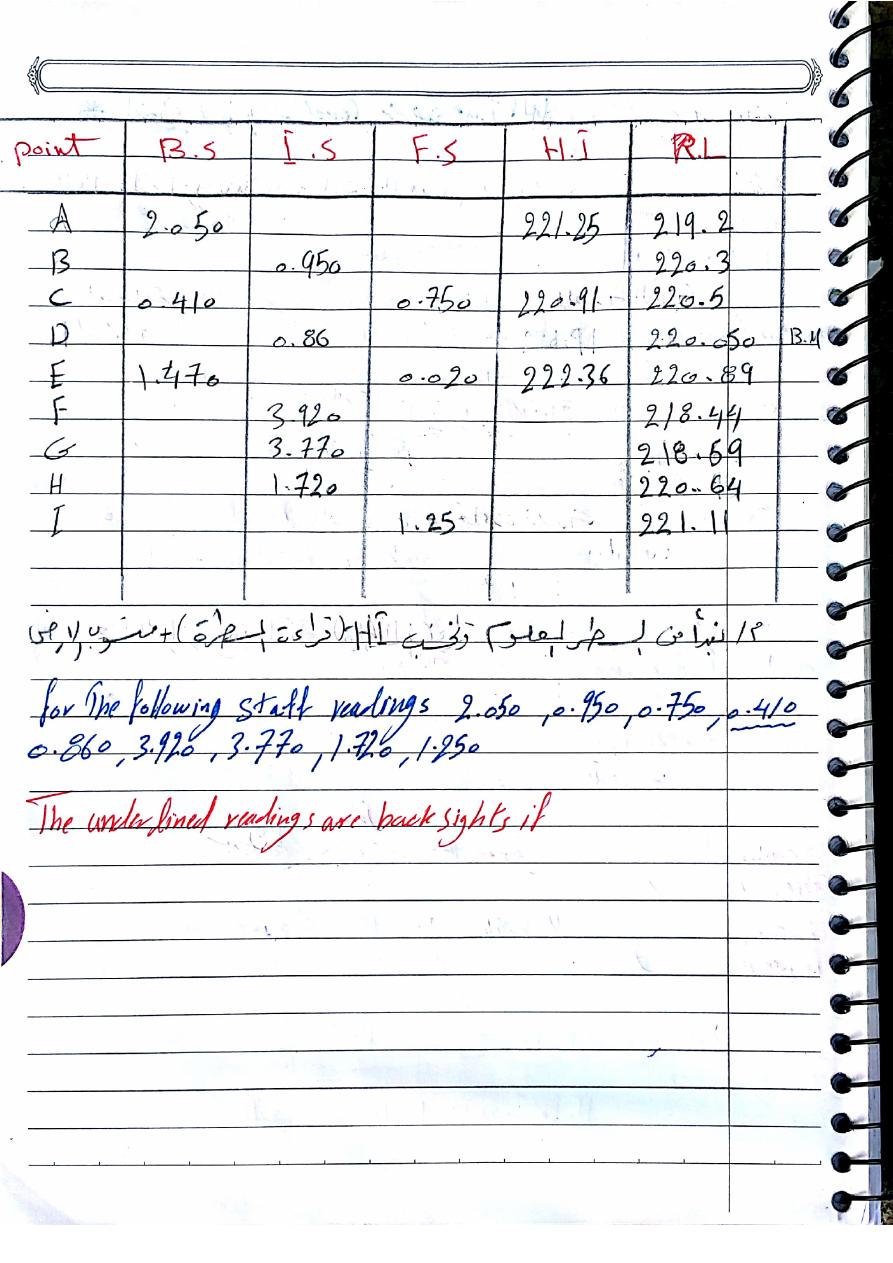 point B.S I.S F.S H.I R.L
A 2.050 221.25 219.2
B 0.950 220.3
C 0.410 0.750 220.91 220.5
D 0.86 220.050 B.M
E 1.470 0.020 222.36 220.89
F 3.920 218.44
G 3.770 218.59
H 1.720 220.64
I 1.25 221.11
م/ نبدأ من السطر المعلوم ونحسب H.I (قراءة المسطرة) + منسوب الارض
for The following staff readings 2.050 , 0.950 , 0.750 , 0.410
0.860 , 3.920 , 3.770 , 1.720 , 1.250
The underlined readings are back sights if